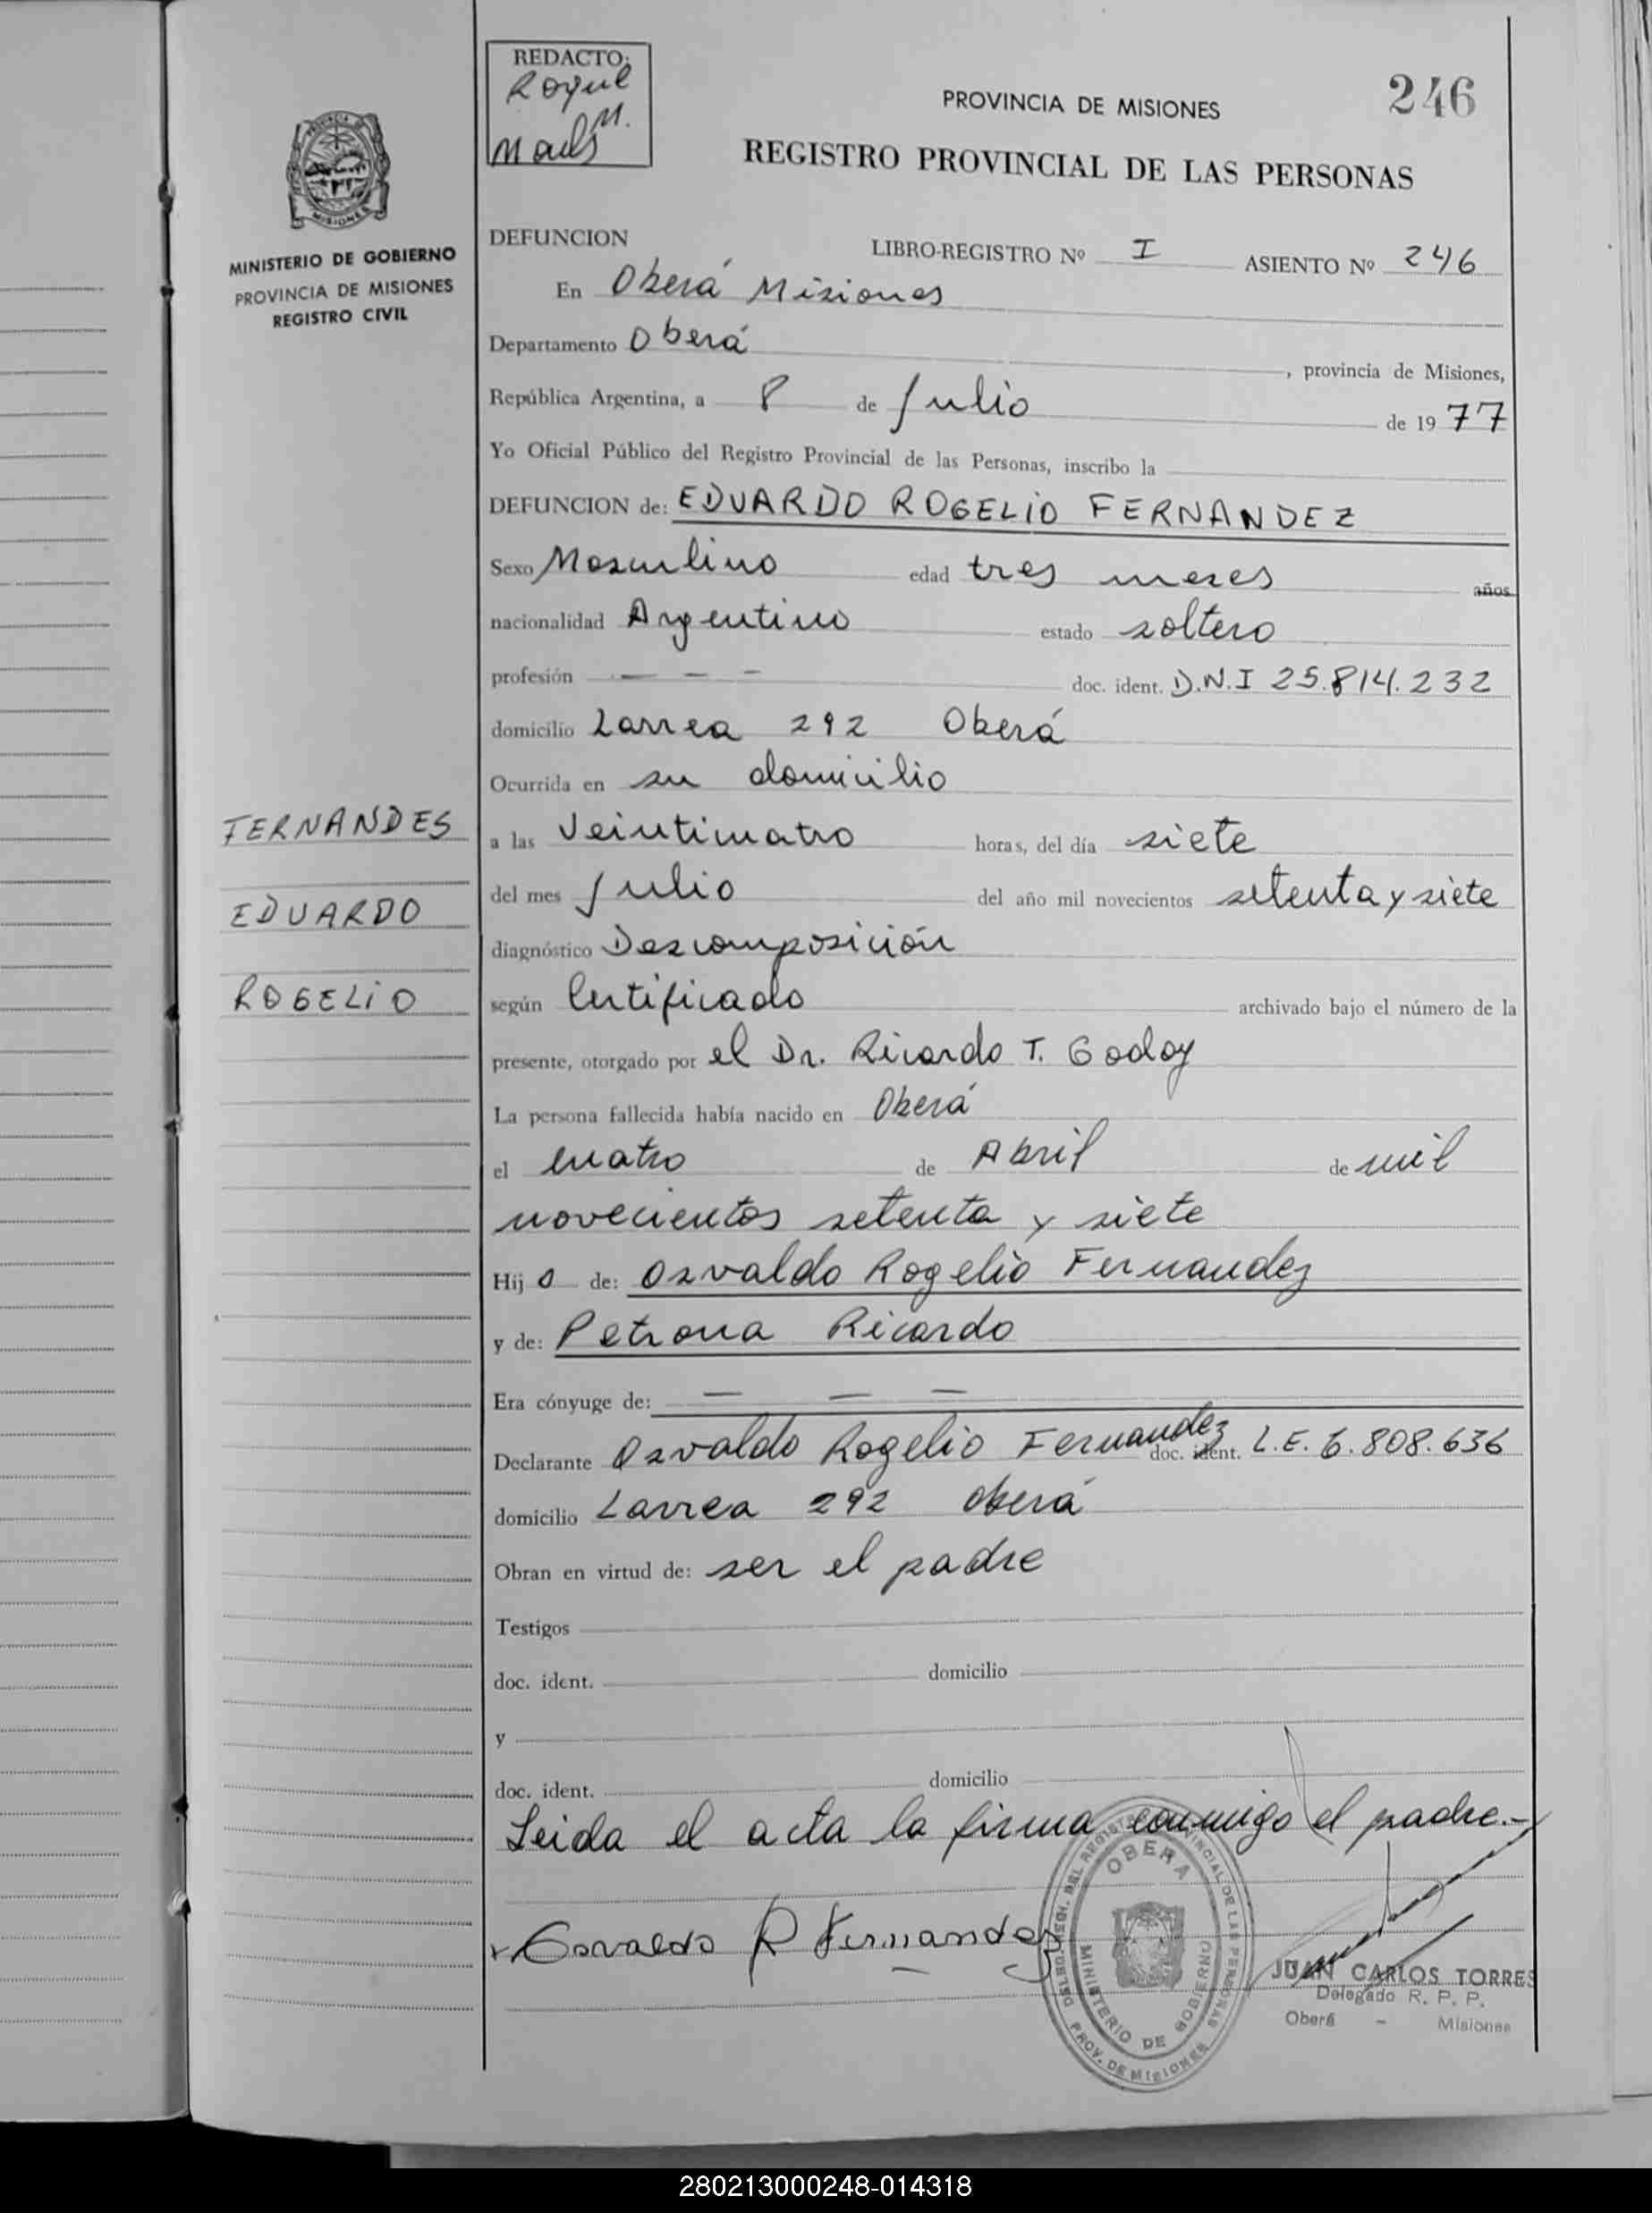 REDACTO:
Roque
M.
246
PROVINCIA DE MISIONES
REGISTRO PROVINCIAL DE LAS PERSONAS
MINISTERIO DE GOBIERNO
PROVINCIA DE MISIONES
REGISTRO CIVIL
DEFUNCION LIBRO-REGISTRO Nº I ASIENTO Nº 246
En Oberá Misiones
Departamento Oberá , provincia de Misiones,
República Argentina, a 8 de Julio de 1977
Yo Oficial Público del Registro Provincial de las Personas, inscribo la
DEFUNCION de: EDUARDO ROGELIO FERNANDEZ
Sexo Masculino edad tres meses años
nacionalidad Argentino estado soltero
profesión — — — doc. ident. D.N.I 25.814.232
domicilio Larrea 292 Oberá
Ocurrida en su domicilio
FERNANDES
EDUARDO
ROGELIO
a las Veinticuatro horas, del día siete
del mes Julio del año mil novecientos setenta y siete
diagnóstico Descomposición
según Certificado archivado bajo el número de la
presente, otorgado por el Dr. Ricardo T. Godoy
La persona fallecida había nacido en Oberá
el cuatro de Abril de mil
novecientos setenta y siete
Hijo de: Osvaldo Rogelio Fernandez
y de: Petrona Ricardo
Era cónyuge de: — — —
Declarante Osvaldo Rogelio Fernandez doc. ident. L.E. 6.808.636
domicilio Larrea 292 Oberá
Obran en virtud de: ser el padre
Testigos
doc. ident. domicilio
y
doc. ident. domicilio
Leida el acta la firma conmigo el padre.-
Osvaldo R Fernandez
OBERA
MINISTERIO DE GOBIERNO
PROV. DE MISIONES
JUAN CARLOS TORRES
Delegado R. P. P.
Oberá - Misiones
280213000248-014318